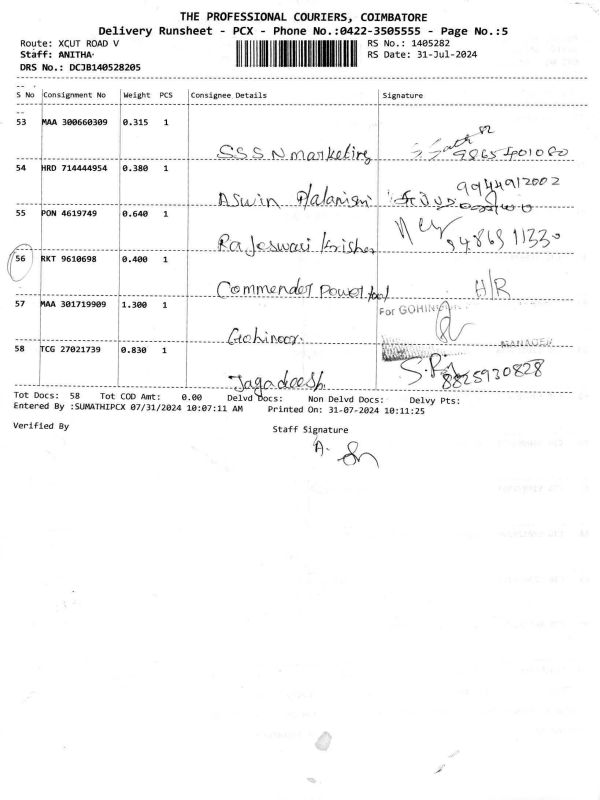 THE PROFESSIONAL COURIERS, COIMBATORE
Delivery Runsheet - PCX - Phone No.:0422-3505555 - Page No.:5
Route: XCUT ROAD V RS No.: 1405282
Staff: ANITHA RS Date: 31-Jul-2024
DRS No.: DCJB140528205
S No Consignment No Weight PCS Consignee Details Signature
53 MAA 300660309 0.315 1
SSSN marketing
54 HRD 714444954 0.380 1
Aswin Palanisri 9944912002
55 PON 4619749 0.640 1
Rajeswari Krishan
56 RKT 9610698 0.400 1
Commender Power tool H/R
57 MAA 301719909 1.300 1 For GOHIN
Gohinoor. MANAGER
58 TCG 27021739 0.830 1
Jagadeesh. 8825930828
Tot Docs: 58 Tot COD Amt: 0.00 Delvd Docs: Non Delvd Docs: Delvy Pts:
Entered By :SUMATHIPCX 07/31/2024 10:07:11 AM Printed On: 31-07-2024 10:11:25
Verified By Staff Signature